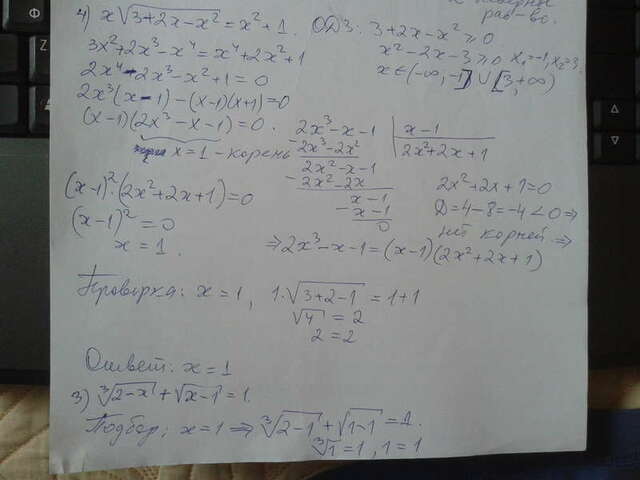 равно.
4) x√(3+2x-x²) = x²+1. ОДЗ: 3+2x-x² ≥ 0
3x²+2x³-x⁴ = x⁴+2x²+1
x²-2x-3 ≥ 0 x₁=-1, x₂=3
2x⁴-2x³-x²+1=0
x ∈ (-∞, -1] ∪ [3, +∞)
2x³(x-1)-(x-1)(x+1)=0
(x-1)(2x³-x-1)=0.
x=1 - корень
2x³-x-1 | x-1
- 2x³-2x² | 2x²+2x+1
2x²-x-1
- 2x²-2x
x-1
- x-1
0
2x²+2x+1=0
D=4-8=-4<0 ⇒
нет корней ⇒
(x-1)²·(2x²+2x+1)=0
(x-1)²=0
x=1.
⇒ 2x³-x-1=(x-1)(2x²+2x+1)
Проверка: x=1, 1·√(3+2-1) = 1+1
√4 = 2
2=2
Ответ: x=1
3) ∛(2-x) + √(x-1) = 1.
Подбор: x=1 ⇒ ∛(2-1) + √(1-1) = 1.
∛1 = 1, 1=1